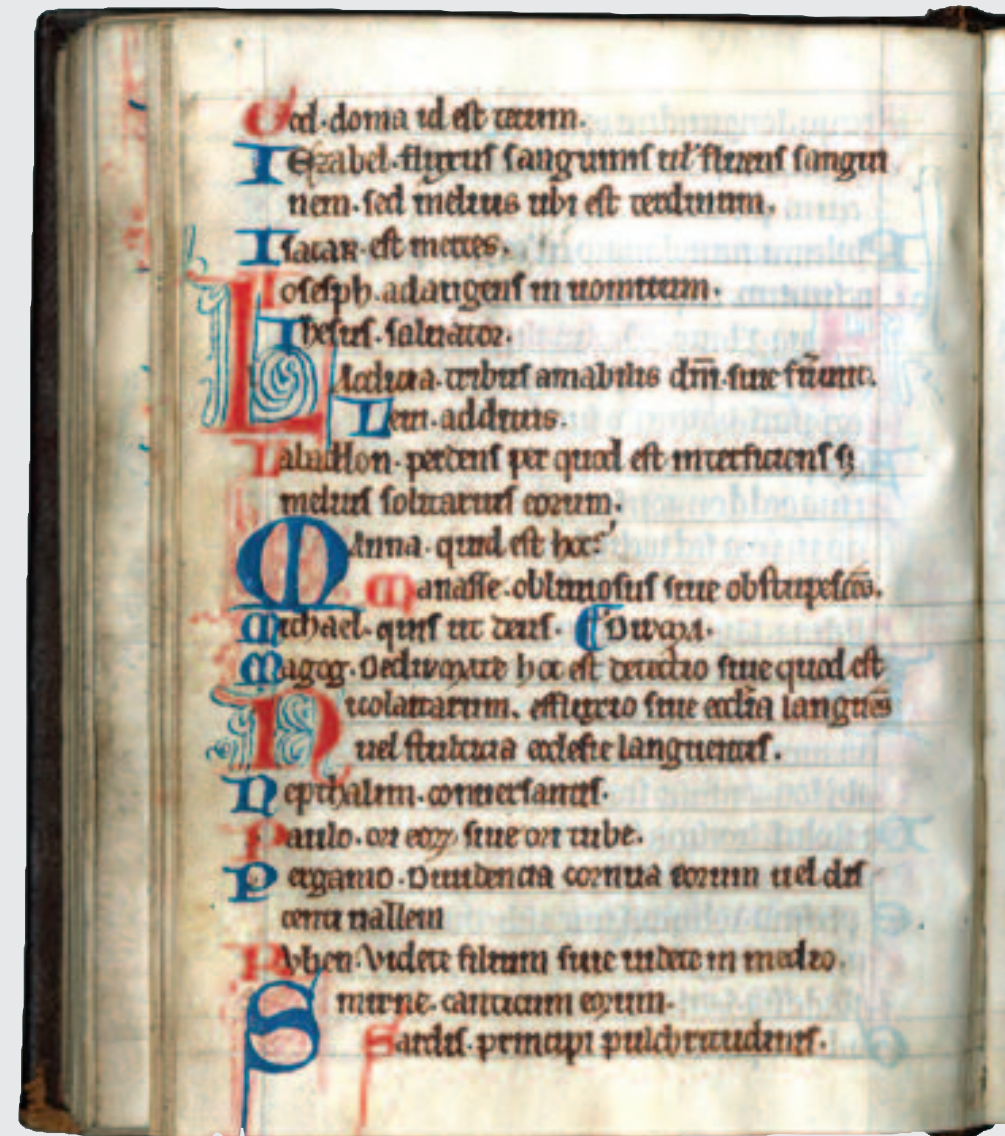 God. doma id est tectum.
Iezabel. fluxus sanguinis ul' fluens sangui
nem. sed melius ubi est
Isacar. est merces.
Ioseph. adaugens in
Ihesus. saluator.
Laodicia. tribus amabilis dm̄. siue
Leui. additus.
Labaddon. perdens per quod est interficiens
melius solitarius eorum.
Manna. quid est hoc?
Manasse. obliuiosus siue obstupescēs.
Michael. quis ut deus.
Magog. hoc est siue quod est
Nicolaitarum. effusio siue eccl̄ia languēs
uel stultitia ecclesie languentis.
Nepthalim. conuersantis.
Paulo. os siue os tube.
Pergamo. Diuidenti cornua eorum uel dis
uallem
Ruben. Videte filium siue uidete in medio.
Smirne. canticum eorum.
Sardis. principi pulchritudinis.